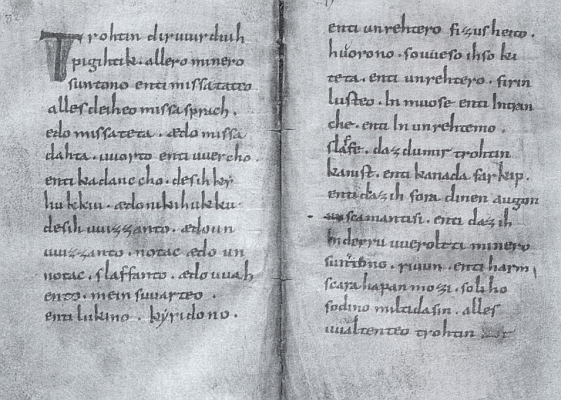 Trohtin dir uuirdu ih
pigihtik · allero minero
suntono enti missatateo
alles deih eo missasprahi ·
edo missateta · ædo missa
dahta · uuorto enti uuercho ·
enti kadancho · des ih ky
hukkiu · ædo ni kihukkiu ·
des ih uuizzanto · ædo un
uuizzanto · notac ædo un
notac · slaffanto · ædo uuah
ento · mein suuarteo ·
enti lukino · kyridono ·
enti unrehtero fizusheito ·
huorono · so uueso ih so ki
teta · enti unrehtero · firin
lusteo · In muose enti In tran
che · enti In unrehtemo ·
slafe · daz du mir trohtin
kanist · enti kanada farkip ·
enti daz ih fora dinen augon
scamanti si · enti daz ih
In derru uuerolti minero
suntono · riuun · enti harm
scara hapan mozi · soliho
so dino miltida sin · alles
uualtenteo trohtin